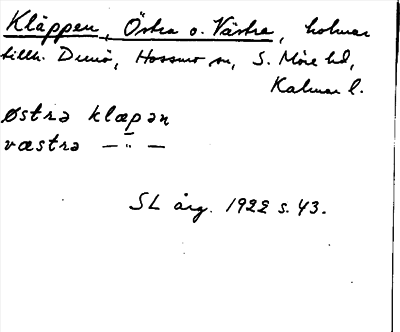 Kläppen, Östra o. Västra, holmar
tillh. Dunö, Hossmo sn, S. Möre hd,
Kalmar l.
østrə klæpən
væstrə — " —
SL årg. 1922 s. 43.